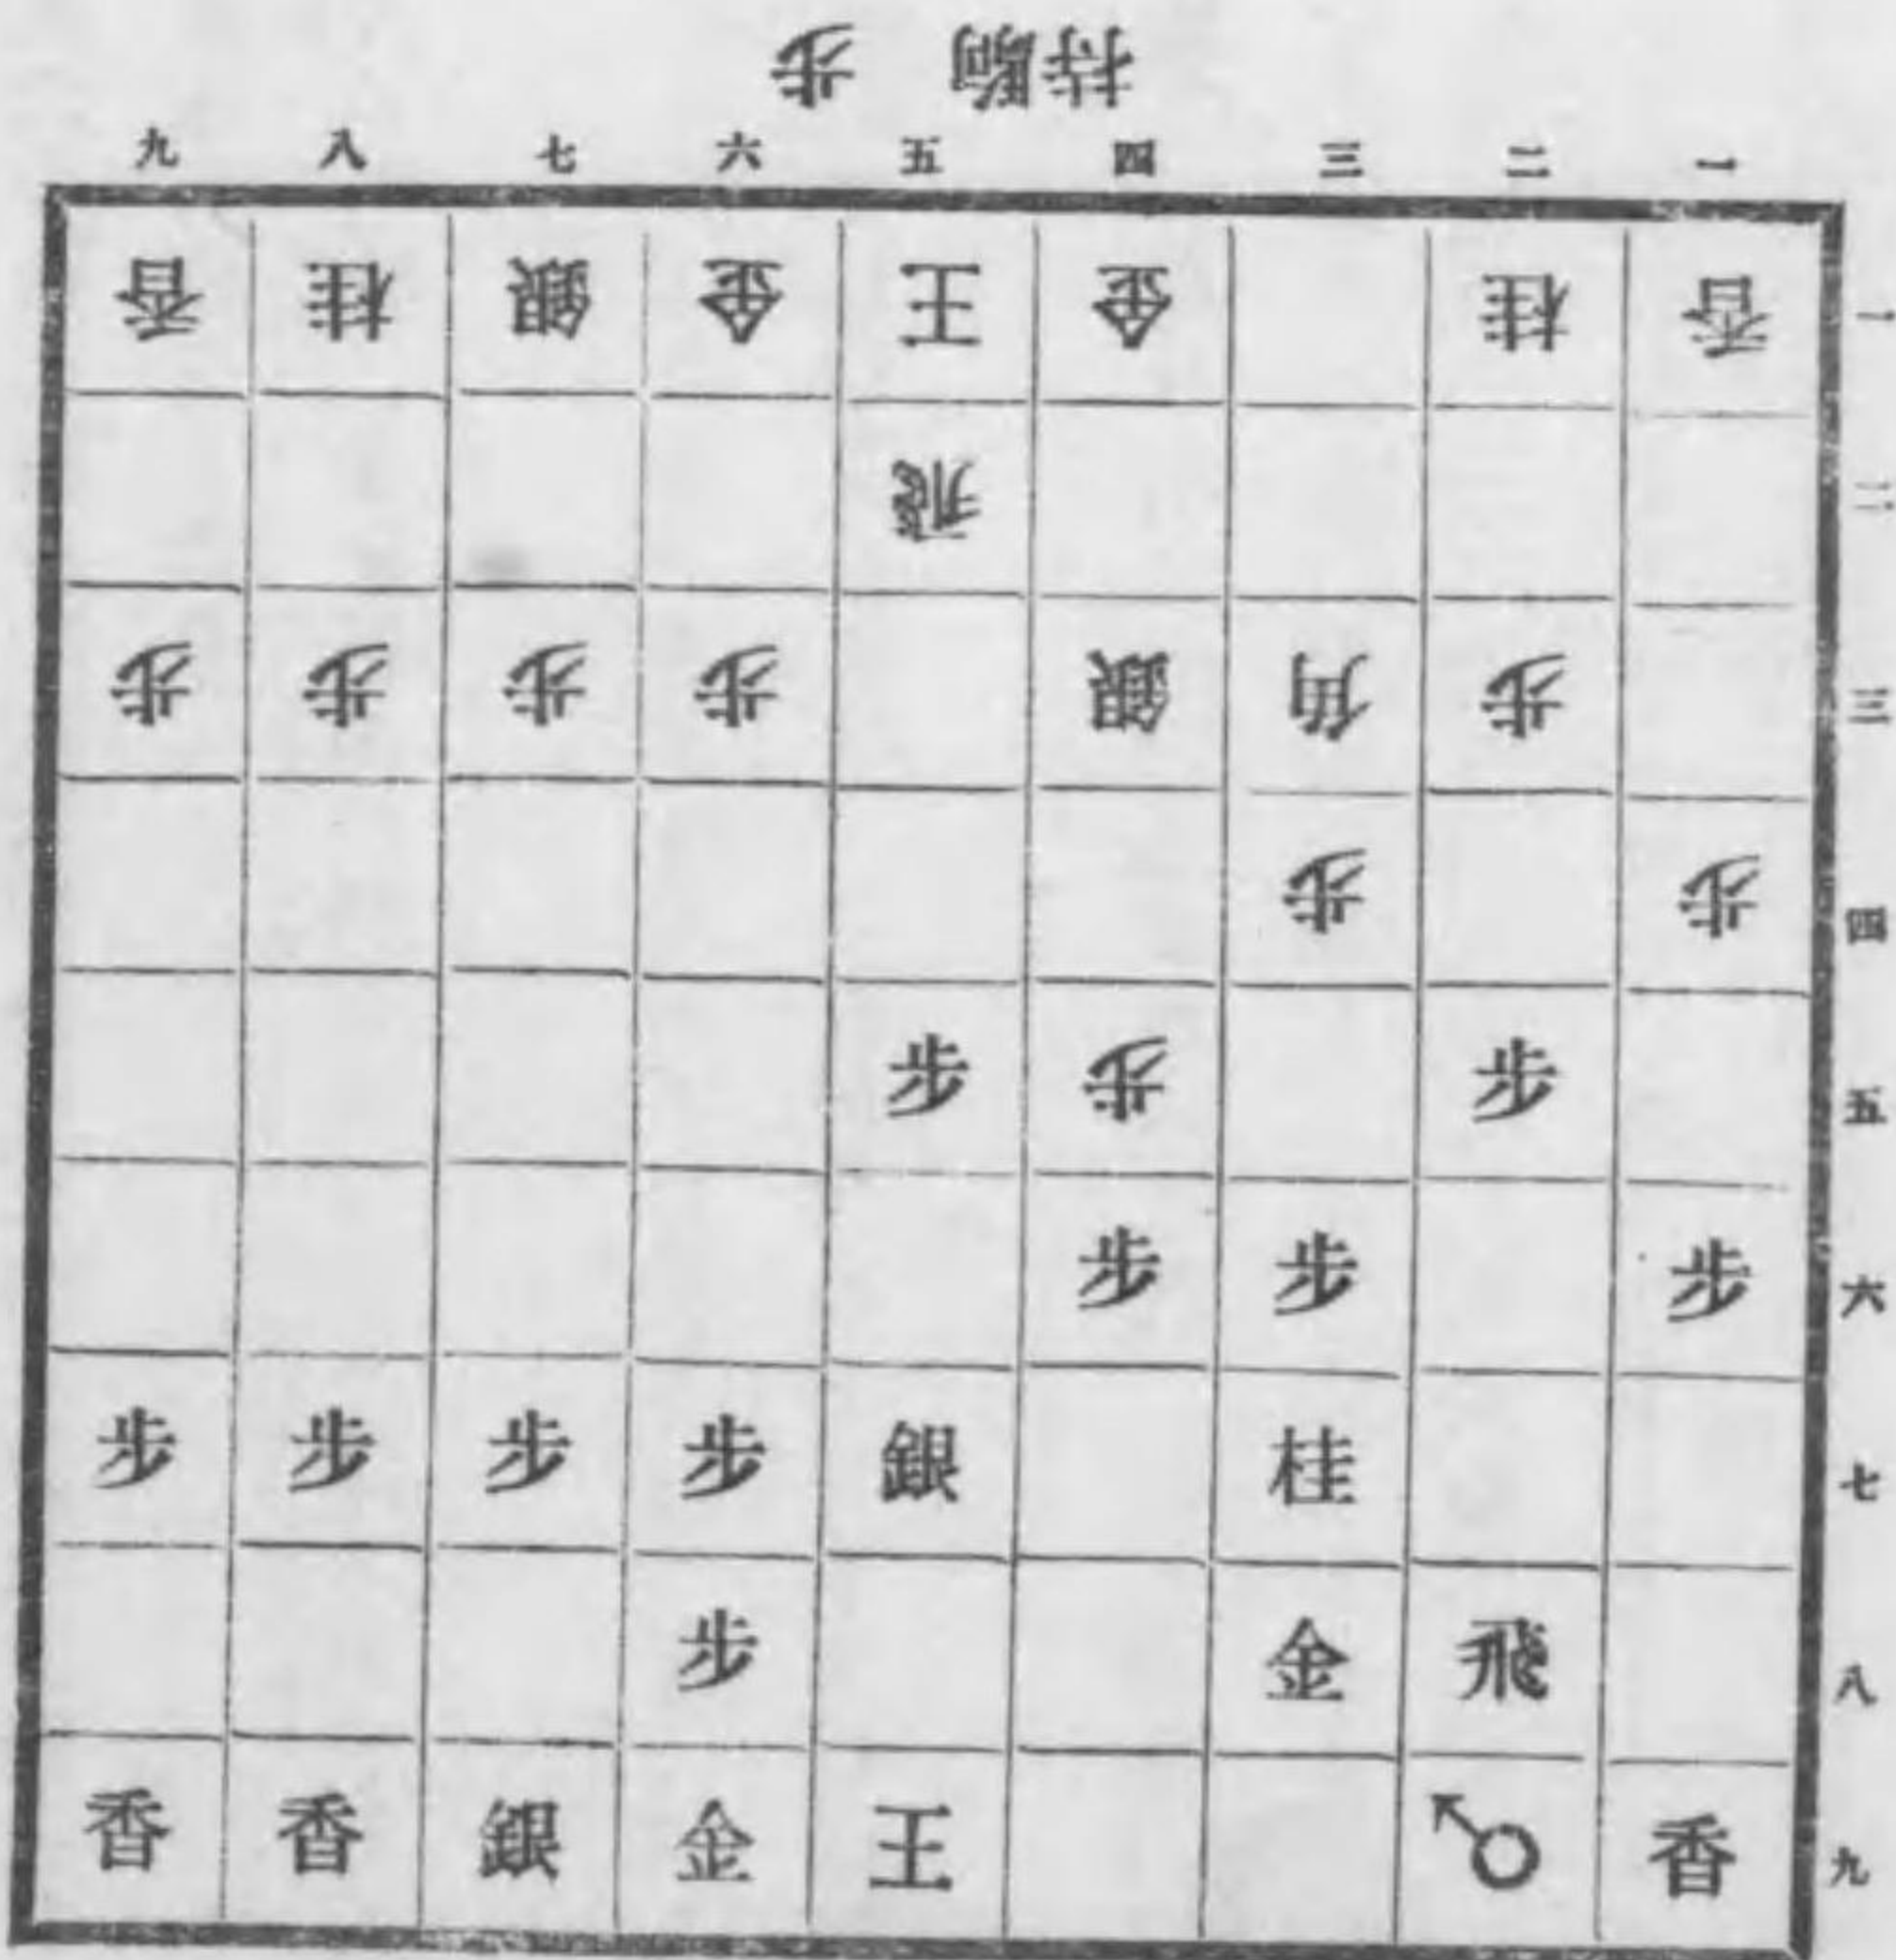 持駒 歩
九 八 七 六 五 四 三 二 一
香 桂 銀 金 王 金 桂 香 一
飛 二
歩 歩 歩 歩 銀 角 歩 三
歩 歩 四
歩 歩 歩 五
歩 歩 歩 六
歩 歩 歩 歩 銀 桂 七
歩 金 飛 八
香 香 銀 金 王 香 九